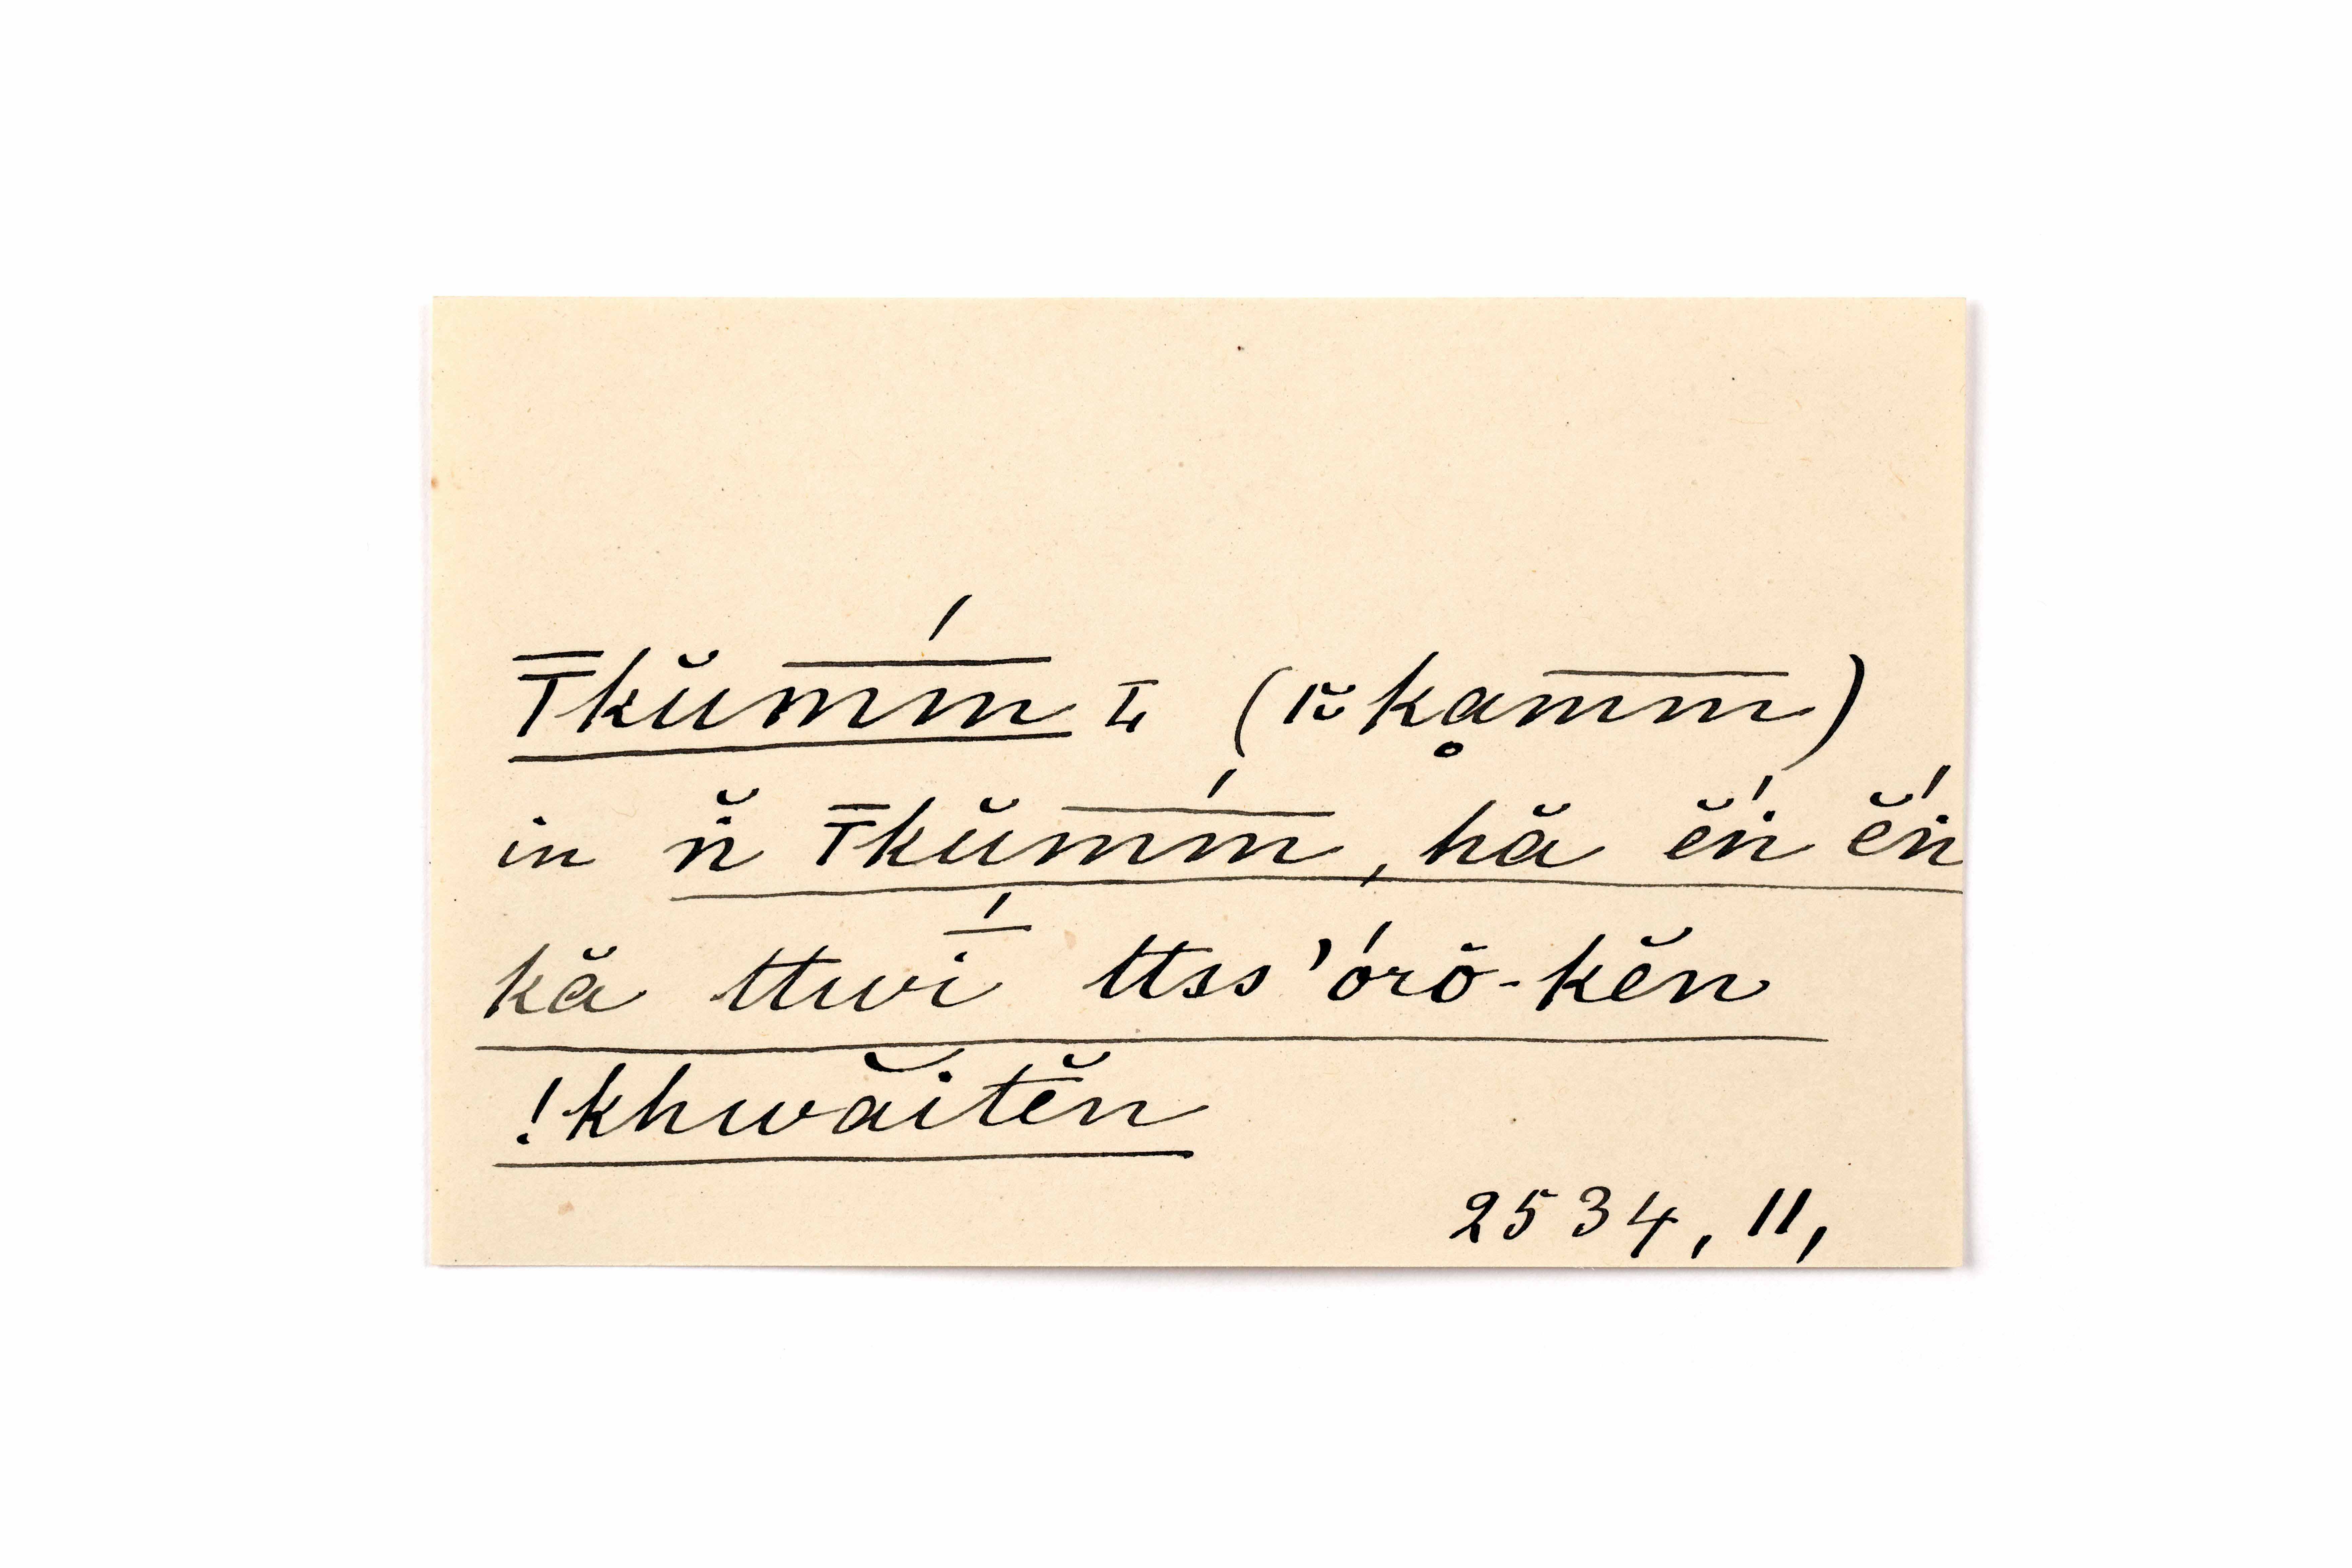 T̿kŭm̅ḿ̅ I̵͟ (I῀kḁm̅m̅)
in n̆̈ T̅kŭm̅ḿ̅, hă ĕ́n ĕ́n
kă ttwī́ ttss'órŏ-kĕn
!khwăitĕn
2534, 11,